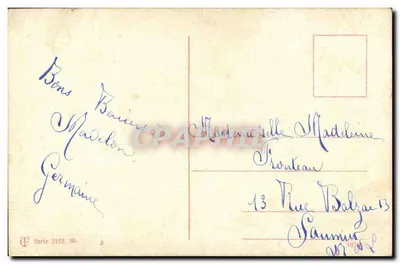 Bons Baisers
Madelon
Germaine
Serie 2152.
Mademoiselle Madeleine
Fronteau
13 Rue Balzac 13
Saumur
M & L